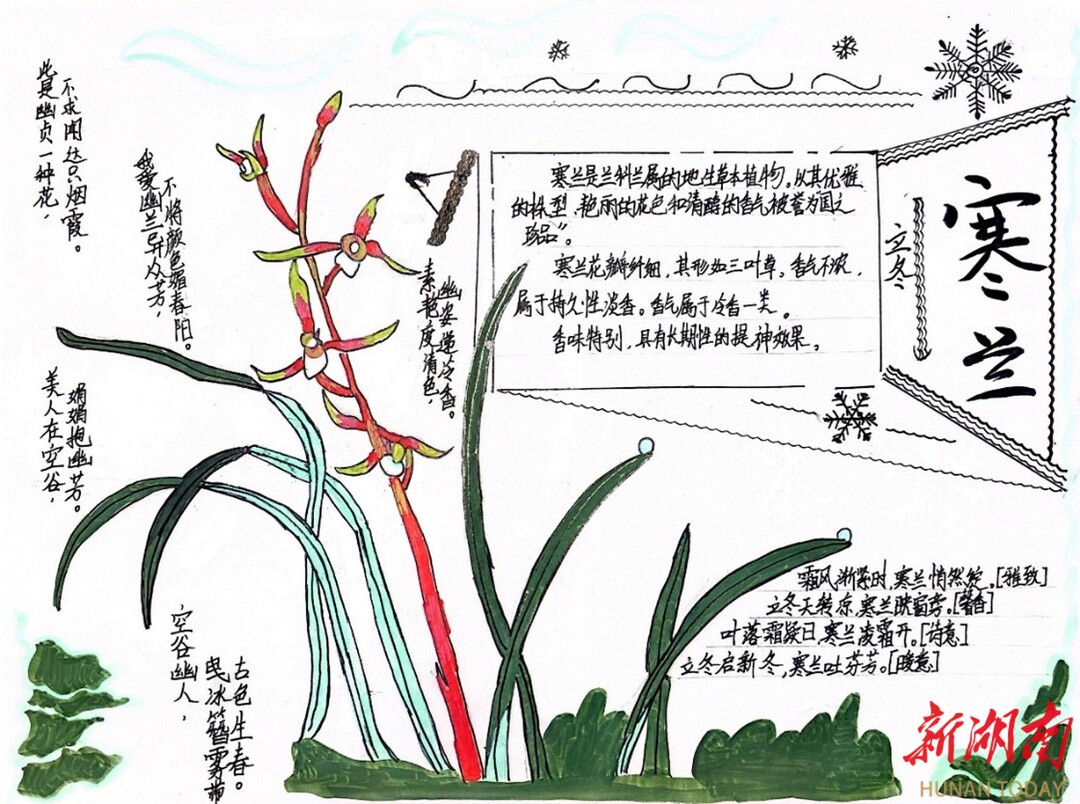 寒兰
立冬
寒兰是兰科兰属的地生草本植物。以其优雅
的株型、艳丽的花色和清醇的香气被誉为国之
珍品”。
寒兰花瓣纤细，其形如三叶草。香气不浓，
属于持久性淡香。香气属于冷香一类。
香味特别，具有长期性的提神效果。
此是幽贞一种花，
不求闻达只烟霞。
我爱幽兰异众芳，
不将颜色媚春阳。
素艳度清色，
幽姿递冷香。
美人在空谷，
娟娟抱幽芳。
空谷幽人，
曳冰簪雾带
古色生春。
霜风渐紧时，寒兰悄然绽。[雅致]
立冬天转凉，寒兰映窗。[馨香]
叶落霜凝日，寒兰凌霜开。[诗意]
立冬启新冬，寒兰吐芬芳。[暖意]
新湖南
HUNAN TODAY